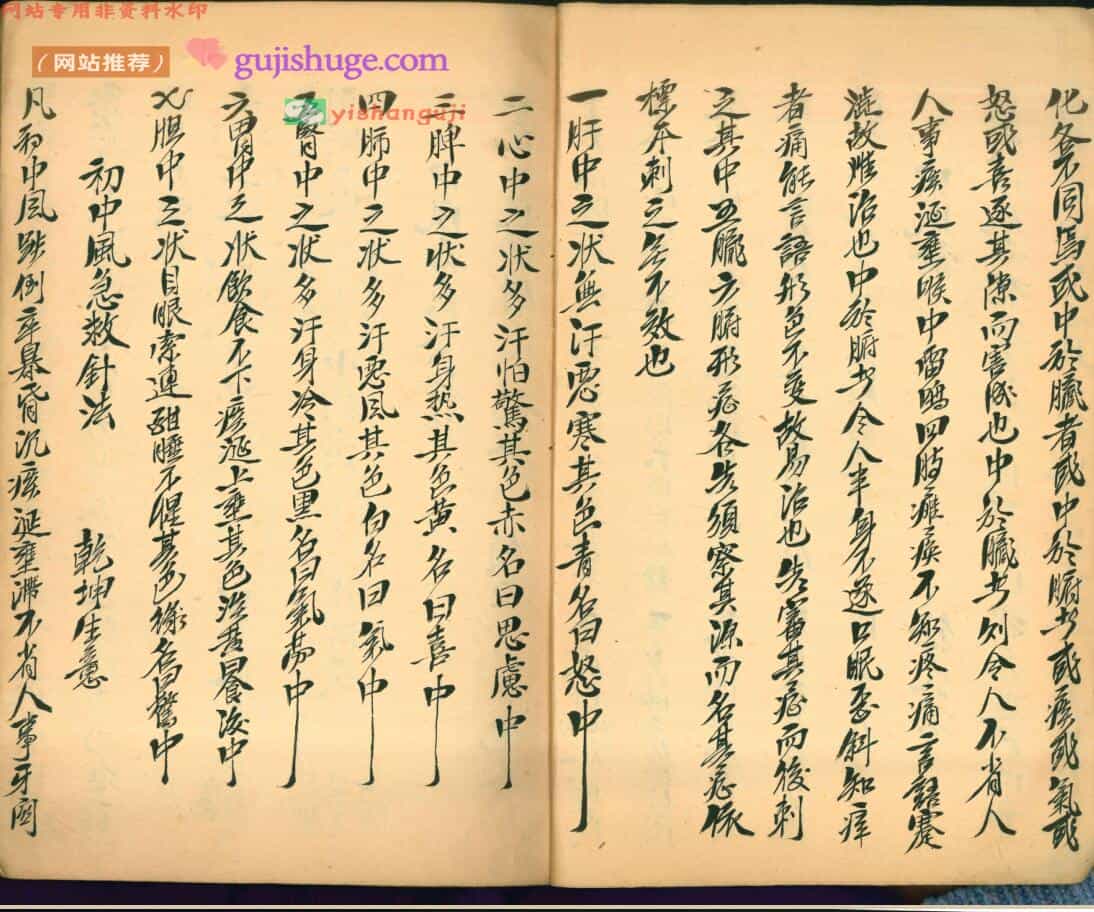 网站专用非资料水印
（网站推荐）
gujishuge.com
yishanguji
化各不同焉或中於臟者或中於腑者或痰或氣或
怒或喜逐其隙而害成也中於臟者則令人不省人
人事痰涎壅喉中雷鳴四肢癱瘓不知疼痛言語蹇
澁故难治也中於腑者令人半身不遂口眼㖞斜知痒
者痛能言語形色不变故易治也先審其症而後刺
之其中五臟六腑形症各先須察其源而名其症依
標本刺之無不效也
一肝中之状無汗惡寒其色青名曰怒中
二心中之状多汗怕驚其色赤名曰思慮中
三脾中之状多汗身热其色黄名曰喜中
四肺中之状多汗惡风其色白名曰氣中
五腎中之状多汗身冷其色黑名曰氣勞中
六胃中之状飲食不下痰涎上壅其色淡黄曰食後中
七胆中之状目眼牽連酣睡不醒其色綠名曰驚中
初中風急救針法
乾坤生意
凡初中风跌倒卒暴昏沉痰涎壅滞不省人事牙関